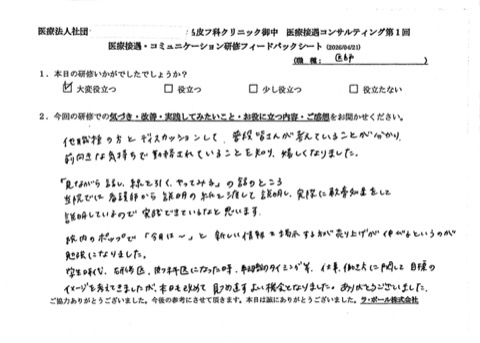 医療法人社団 皮フ科クリニック御中 医療接遇コンサルティング第1回
医療接遇・コミュニケーション研修フィードバックシート (2026/04/21)
(職種: 医師 )
1. 本日の研修いかがでしたでしょうか?
☑大変役立つ □役立つ □少し役立つ □役立たない
2. 今回の研修での気づき・改善・実践してみたいこと・お役に立つ内容・ご感想をお聞かせください。
他職種の方とディスカッションして、普段皆さんが考えていることが分かり、
前向きな気持ちで勤務されていることを知り、嬉しくなりました。
「見ながら話し、線を引く、やってみる」の話のところ
当院では看護師から説明の紙を渡して説明し、実際に
説明しているので実践できているなと思います。
院内のポップで「今月は〜」と新しい情報を掲示する方が売り上げが伸びるというのが
勉強になりました。
学生時代、研修医、皮フ科医になった時、のタイミング等、仕事、働き方に関して目標の
イメージを考えてきましたが、本日も改めて見つめ直すよい機会となりました。ありがとうございました。
ご協力ありがとうございました。今後の参考にさせて頂きます。本日は誠にありがとうございました。 ラ・ポール株式会社